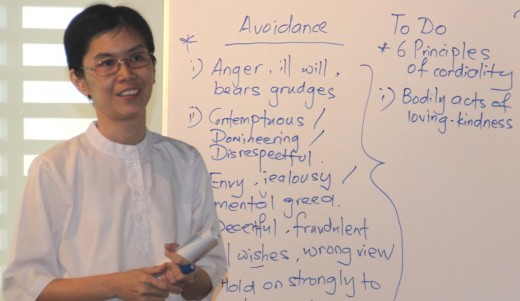 * Avoidance
i) Anger, ill will,
bears grudges
ii) Contemptuous /
Domineering /
Disrespectful.
Envy, jealousy /
mental greed.
fraudulent
wishes, wrong view
Hold on strongly to
To Do
* 6 Principles
of cordiality
i) Bodily acts of
loving-kindness